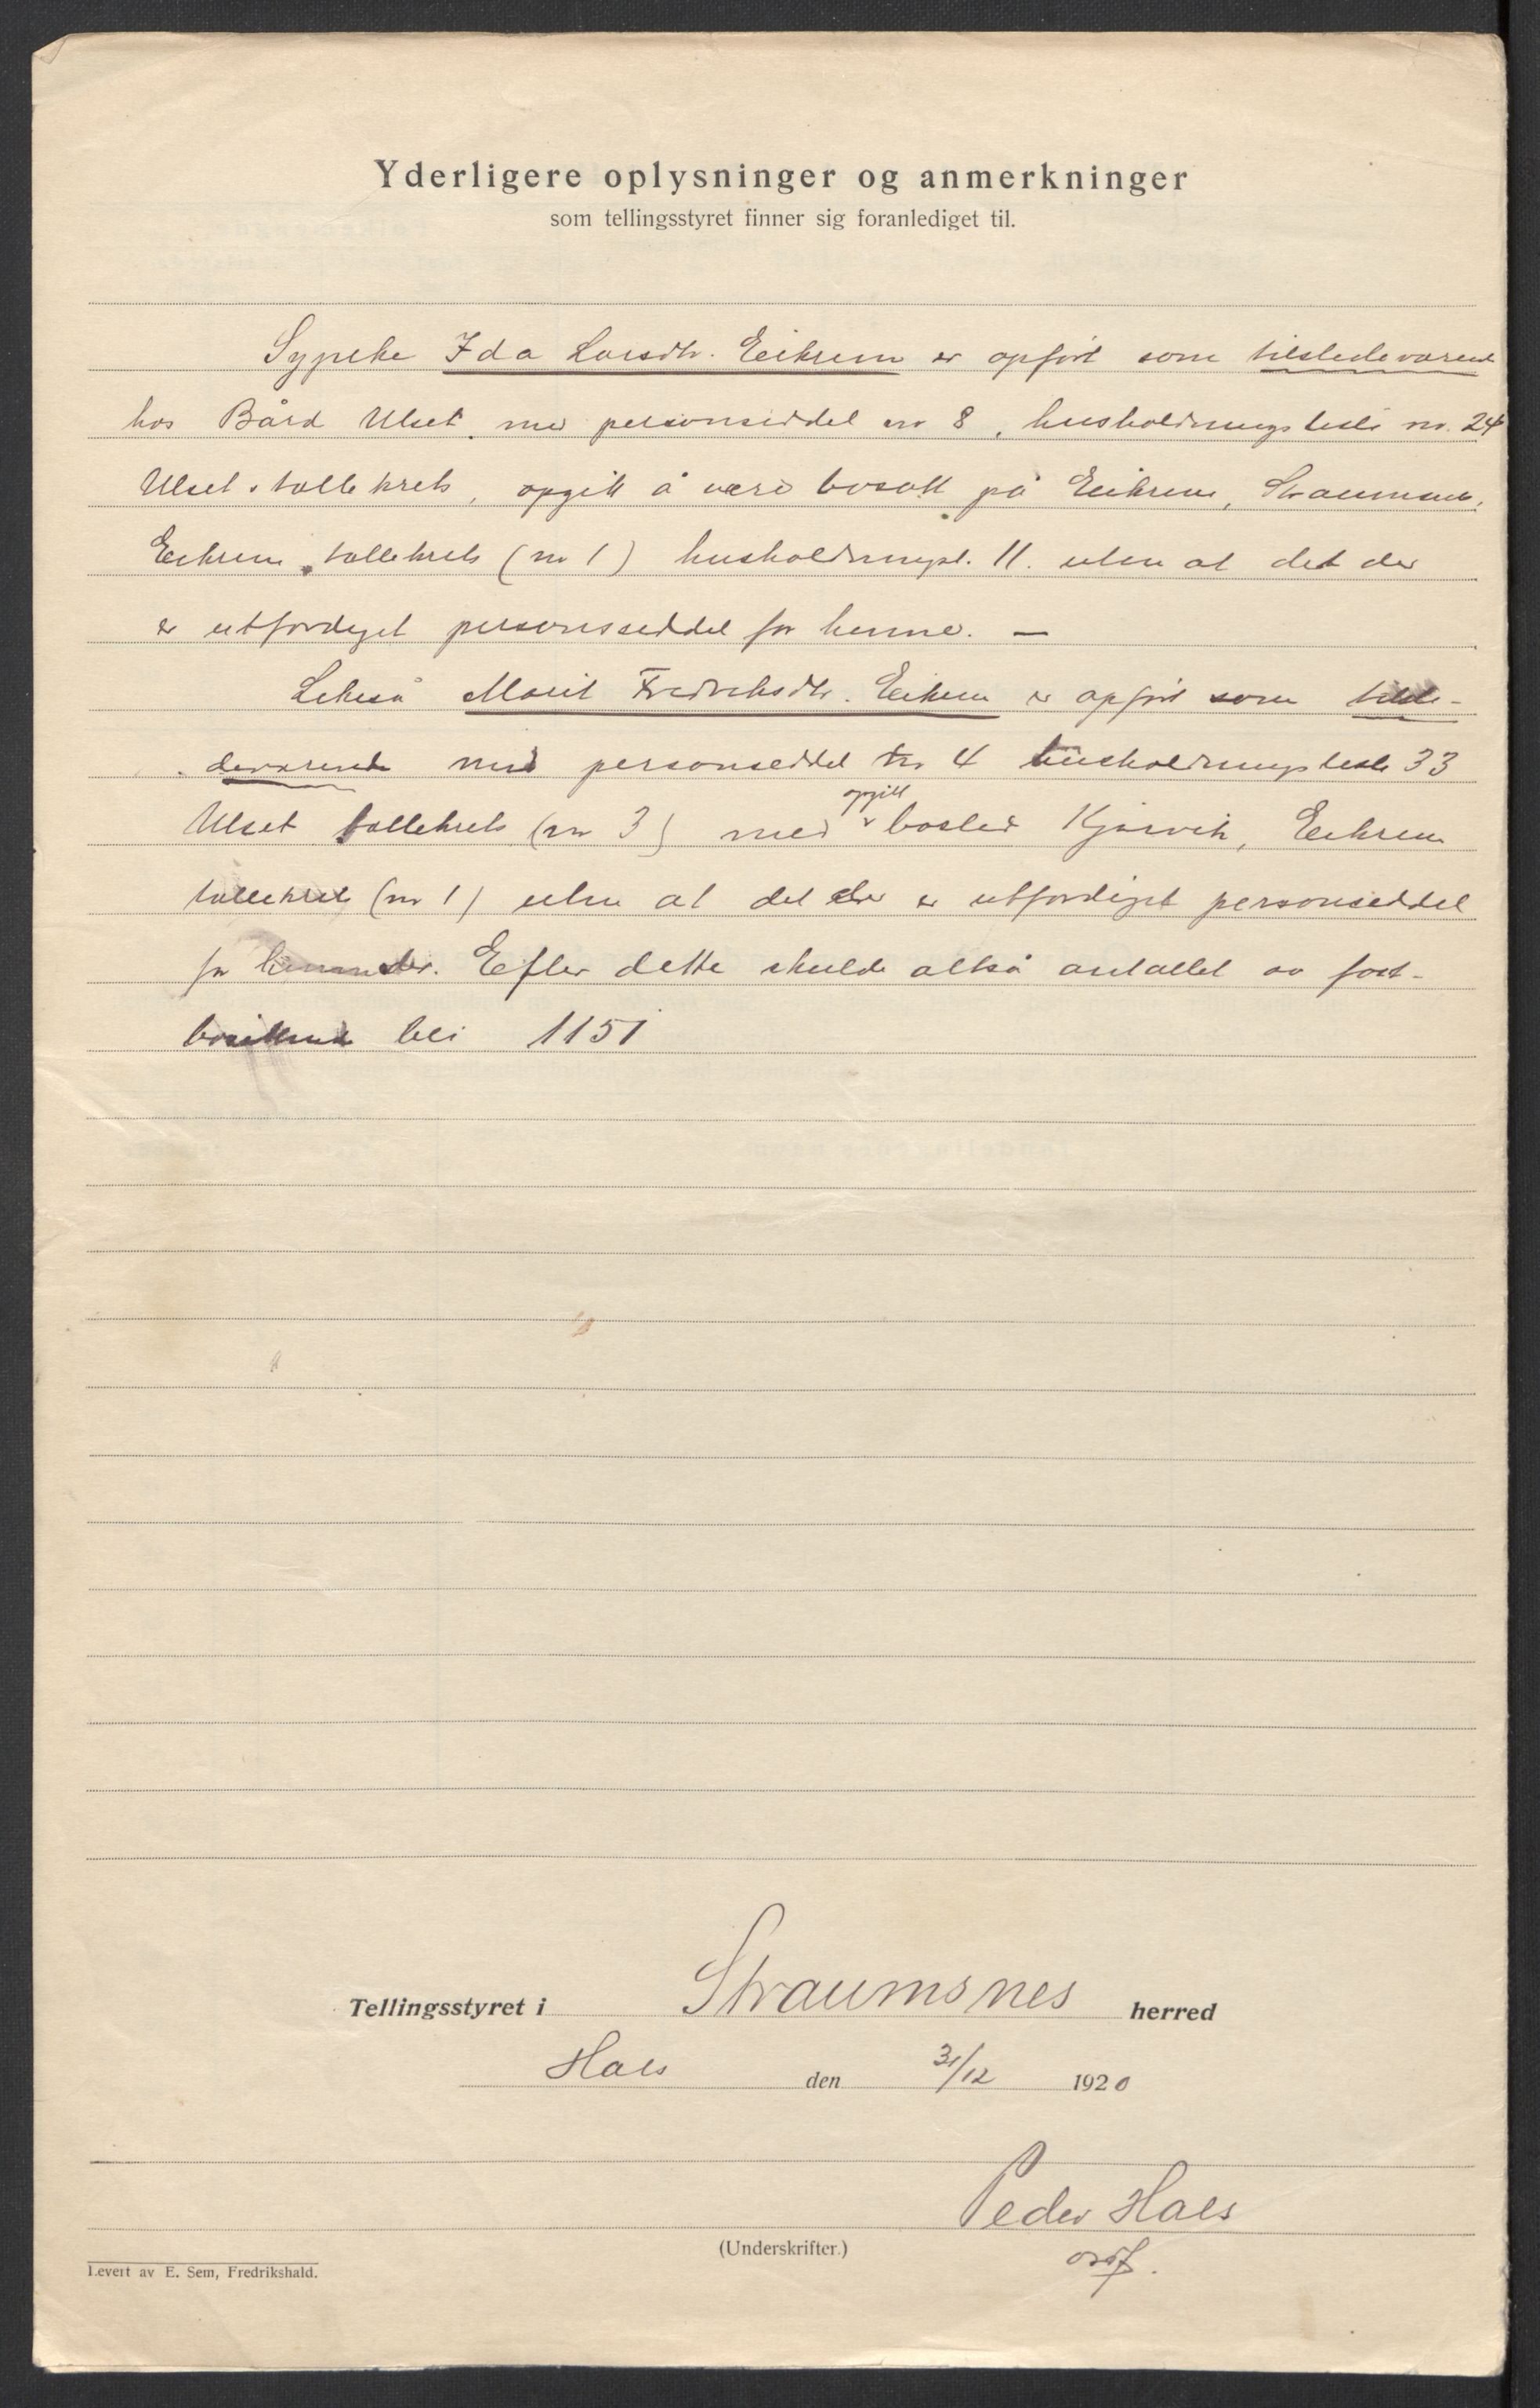 Yderligere oplysninger og anmerkninger
som tellingsstyret finner sig foranlediget til.
Sypike Ida Larsdtr. Eikrem er opført som tilstedeværende
hos Bård Ulset med personseddel nr 8, husholdningsliste nr. 24
Ulset tellekrets, opgitt å være bosatt på Eikrem, Straumsnes,
Eikrem tellekrets (nr 1) husholdningsl. 11. uten at det der
er utferdiget personsseddel for henne. —
Likeså Marit Fredriksdtr. Eikrem er opført som tilste-
deværende med personseddel nr 4 husholdningsliste 33
Ulset tellekrets (nr 3) med opgitt bosted Kjørvik, Eikrem
tellekrets (nr 1) uten at det der er utferdiget personseddel
for der. Efter dette skulde altså antallet av fast-
bosittende bli 1151
Tellingsstyret i Straumsnes herred
Hals den 31/12 1920
Peder Hals
(Underskrifter.)
ordf.
Levert av E. Sem, Fredrikshald.